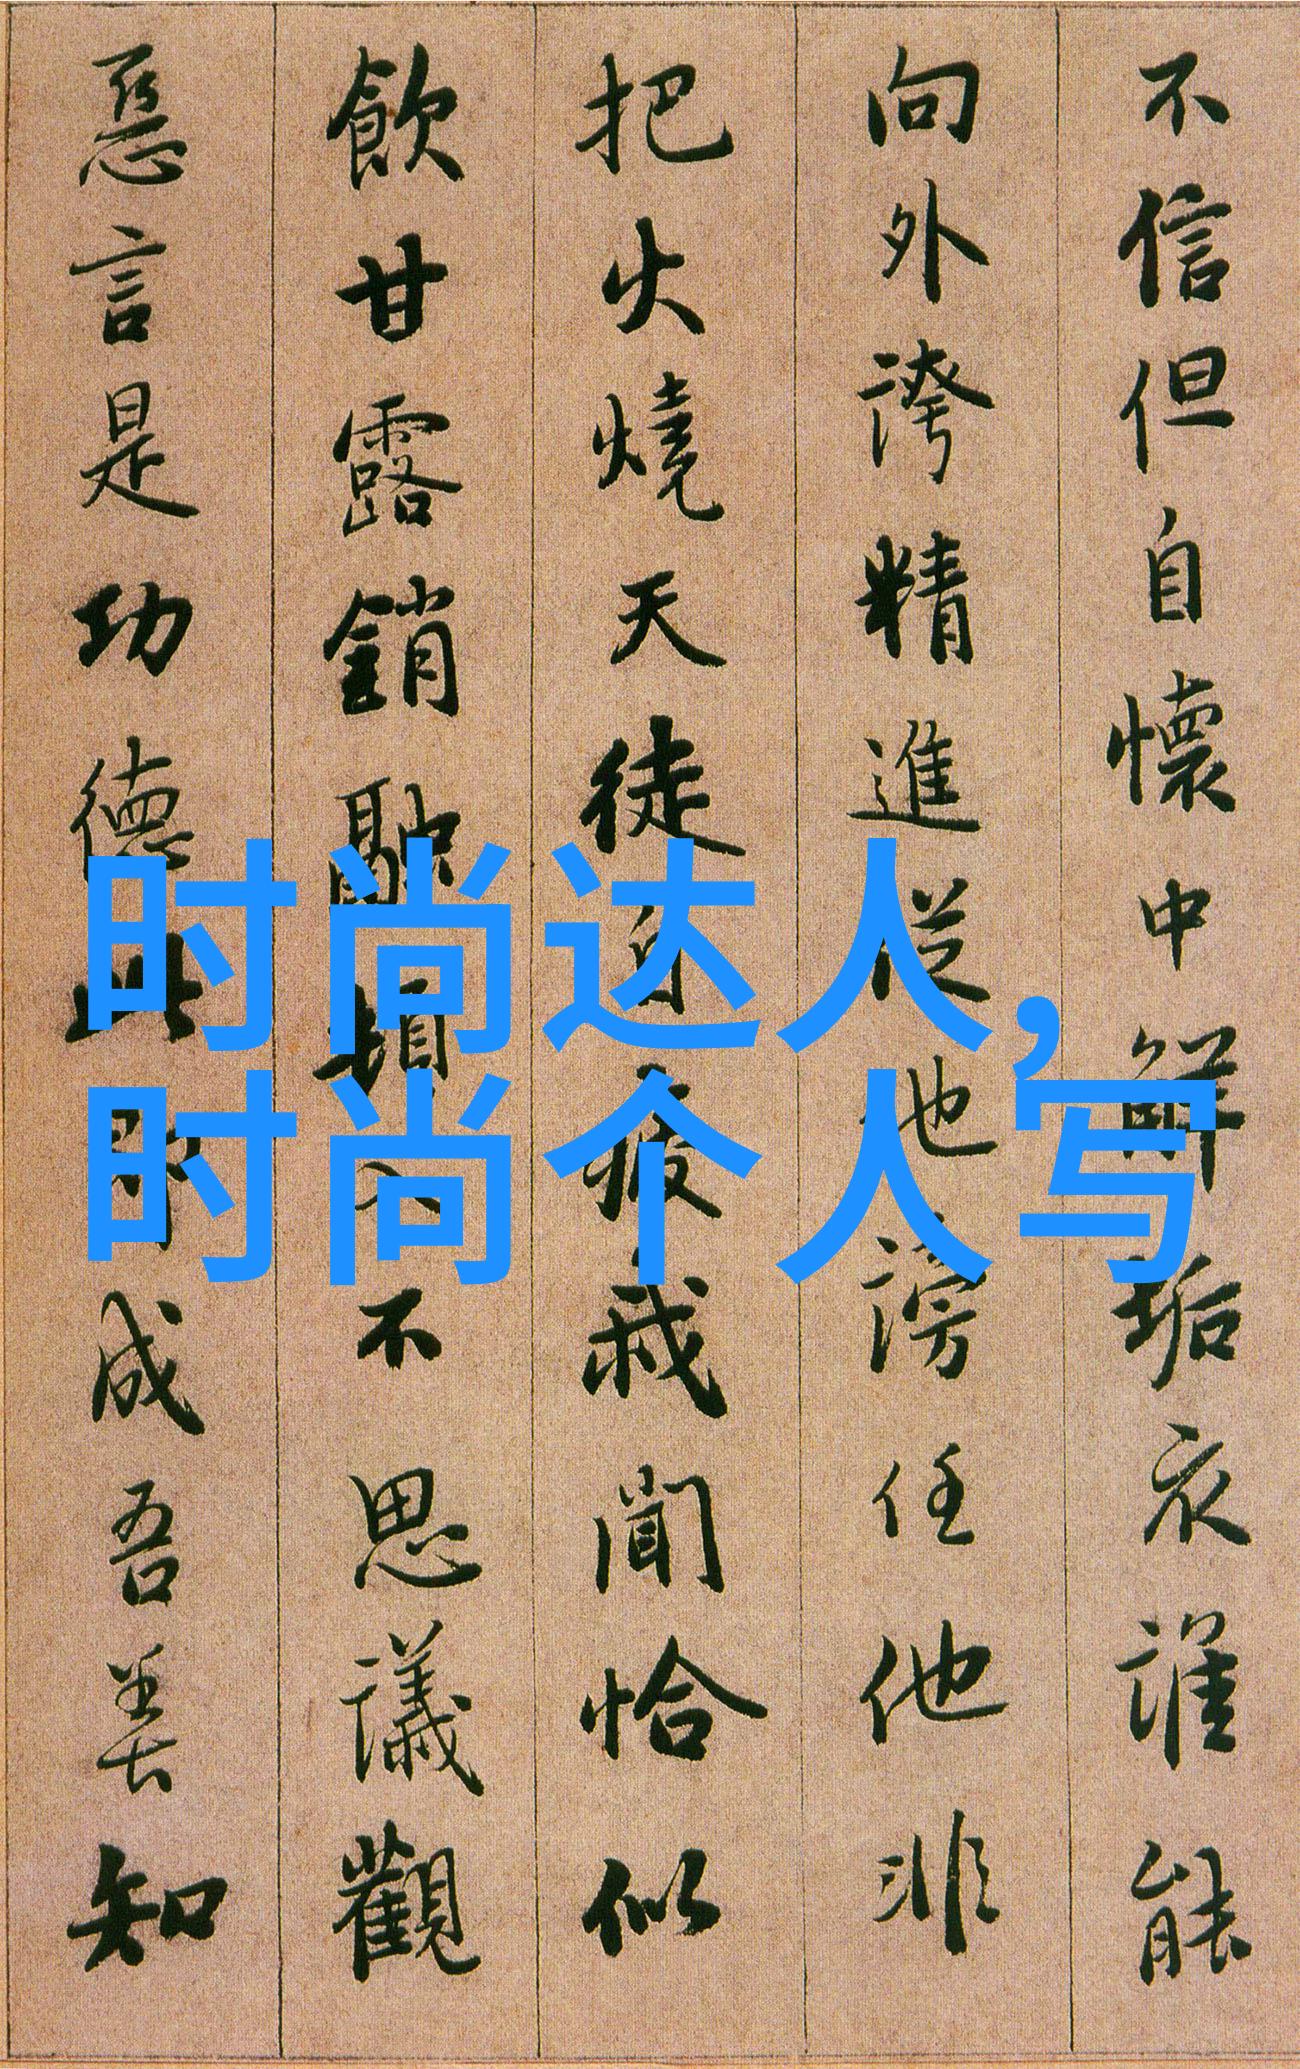 不信但自懷中解垢衣誰能
向外誇精進從他謗任他非
把火燒天徒自疲我聞恰似
飲甘露銷融頓入不思議觀
惡言是功德此即成吾善知
时尚达人,
时尚个人写